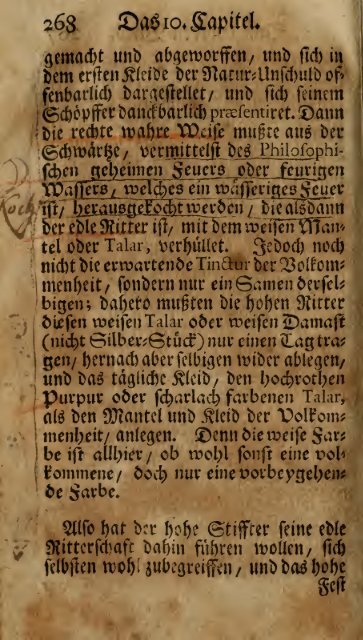 268 Das 10. Capitel.
gemacht und abgeworffen, und sich in
dem ersten Kleide der Natur-Unschuld of-
fenbarlich dargestellet, und sich seinem
Schöpffer danckbarlich præsentiret. Dann
die rechte wahre Weise mußte aus der
Schwärtze, vermittelst des Philosophi-
schen geheimen Feuers oder feurigen
Wassers, welches ein wässeriges Feuer
Koch
ist, herausgekocht werden, die alsdann
der edle Ritter ist, mit dem weisen Man-
tel oder Talar, verhüllet. Jedoch noch
nicht die erwartende Tinctur der Vollkom-
menheit, sondern nur ein Samen dersel-
bigen; dahero mußten die hohen Ritter
diesen weisen Talar oder weisen Damast
(nicht Silber-Stück) nur einen Tag tra-
gen, hernach aber selbigen wider ablegen,
und das tägliche Kleid, den hochrothen
Purpur oder scharlach farbenen Talar,
als den Mantel und Kleid der Vollkom-
menheit, anlegen. Denn die weise Far-
be ist allhier, ob wohl sonst eine vol-
kommene, doch nur eine vorbeygehen-
de Farbe.
Also hat der hohe Stiffter seine edle
Ritterschaft dahin führen wollen, sich
selbsten wohl zubegreiffen, und das hohe
Fest